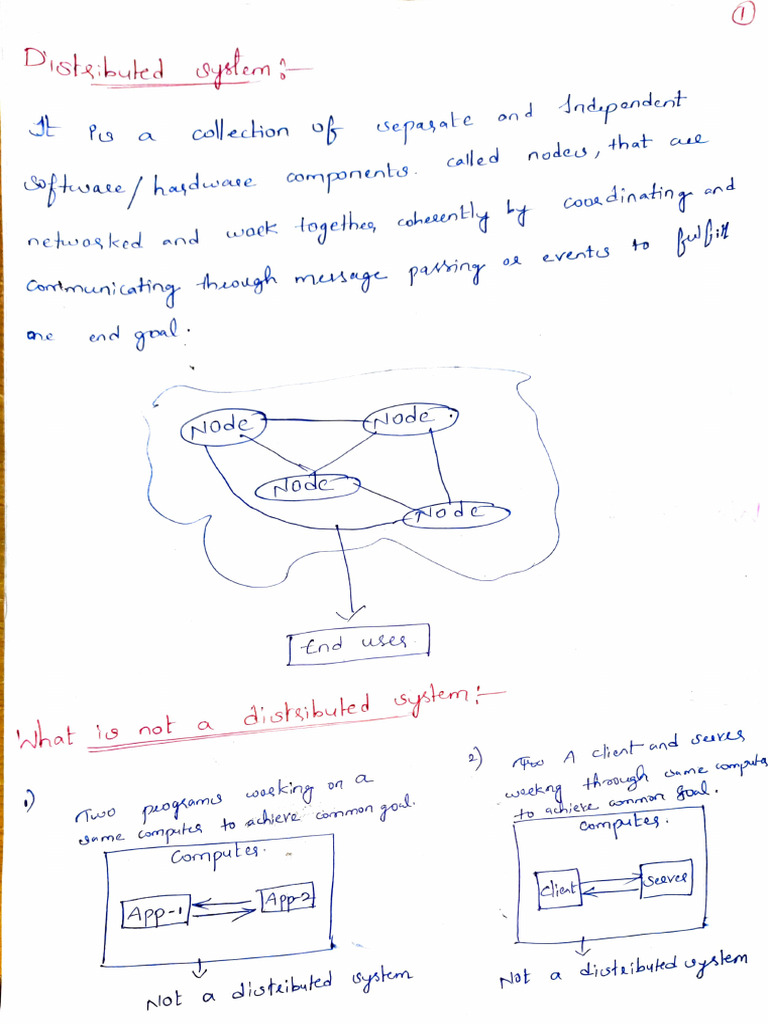 1
Distributed system:-
It is a collection of separate and Independent
software/hardware components. called nodes, that are
networked and work together, coherently by coordinating and
communicating through message passing or events to fulfill
one end goal.
Node
Node
Node
Node
End user
What is not a distributed system:-
1) Two programs working on a
same computer to achieve common goal.
Computer.
App-1
App-2
Not a distributed system
2) A client and server
working through same computer
to achieve common goal.
Computer.
Client
Server
Not a distributed system